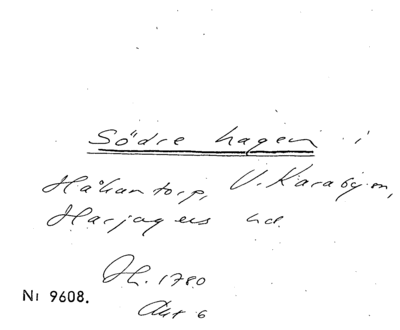 Södre hagen i
Håkantorp, V. Karabyn,
Harjagers hd
Jh. 1780
Akt 6
Nı 9608.